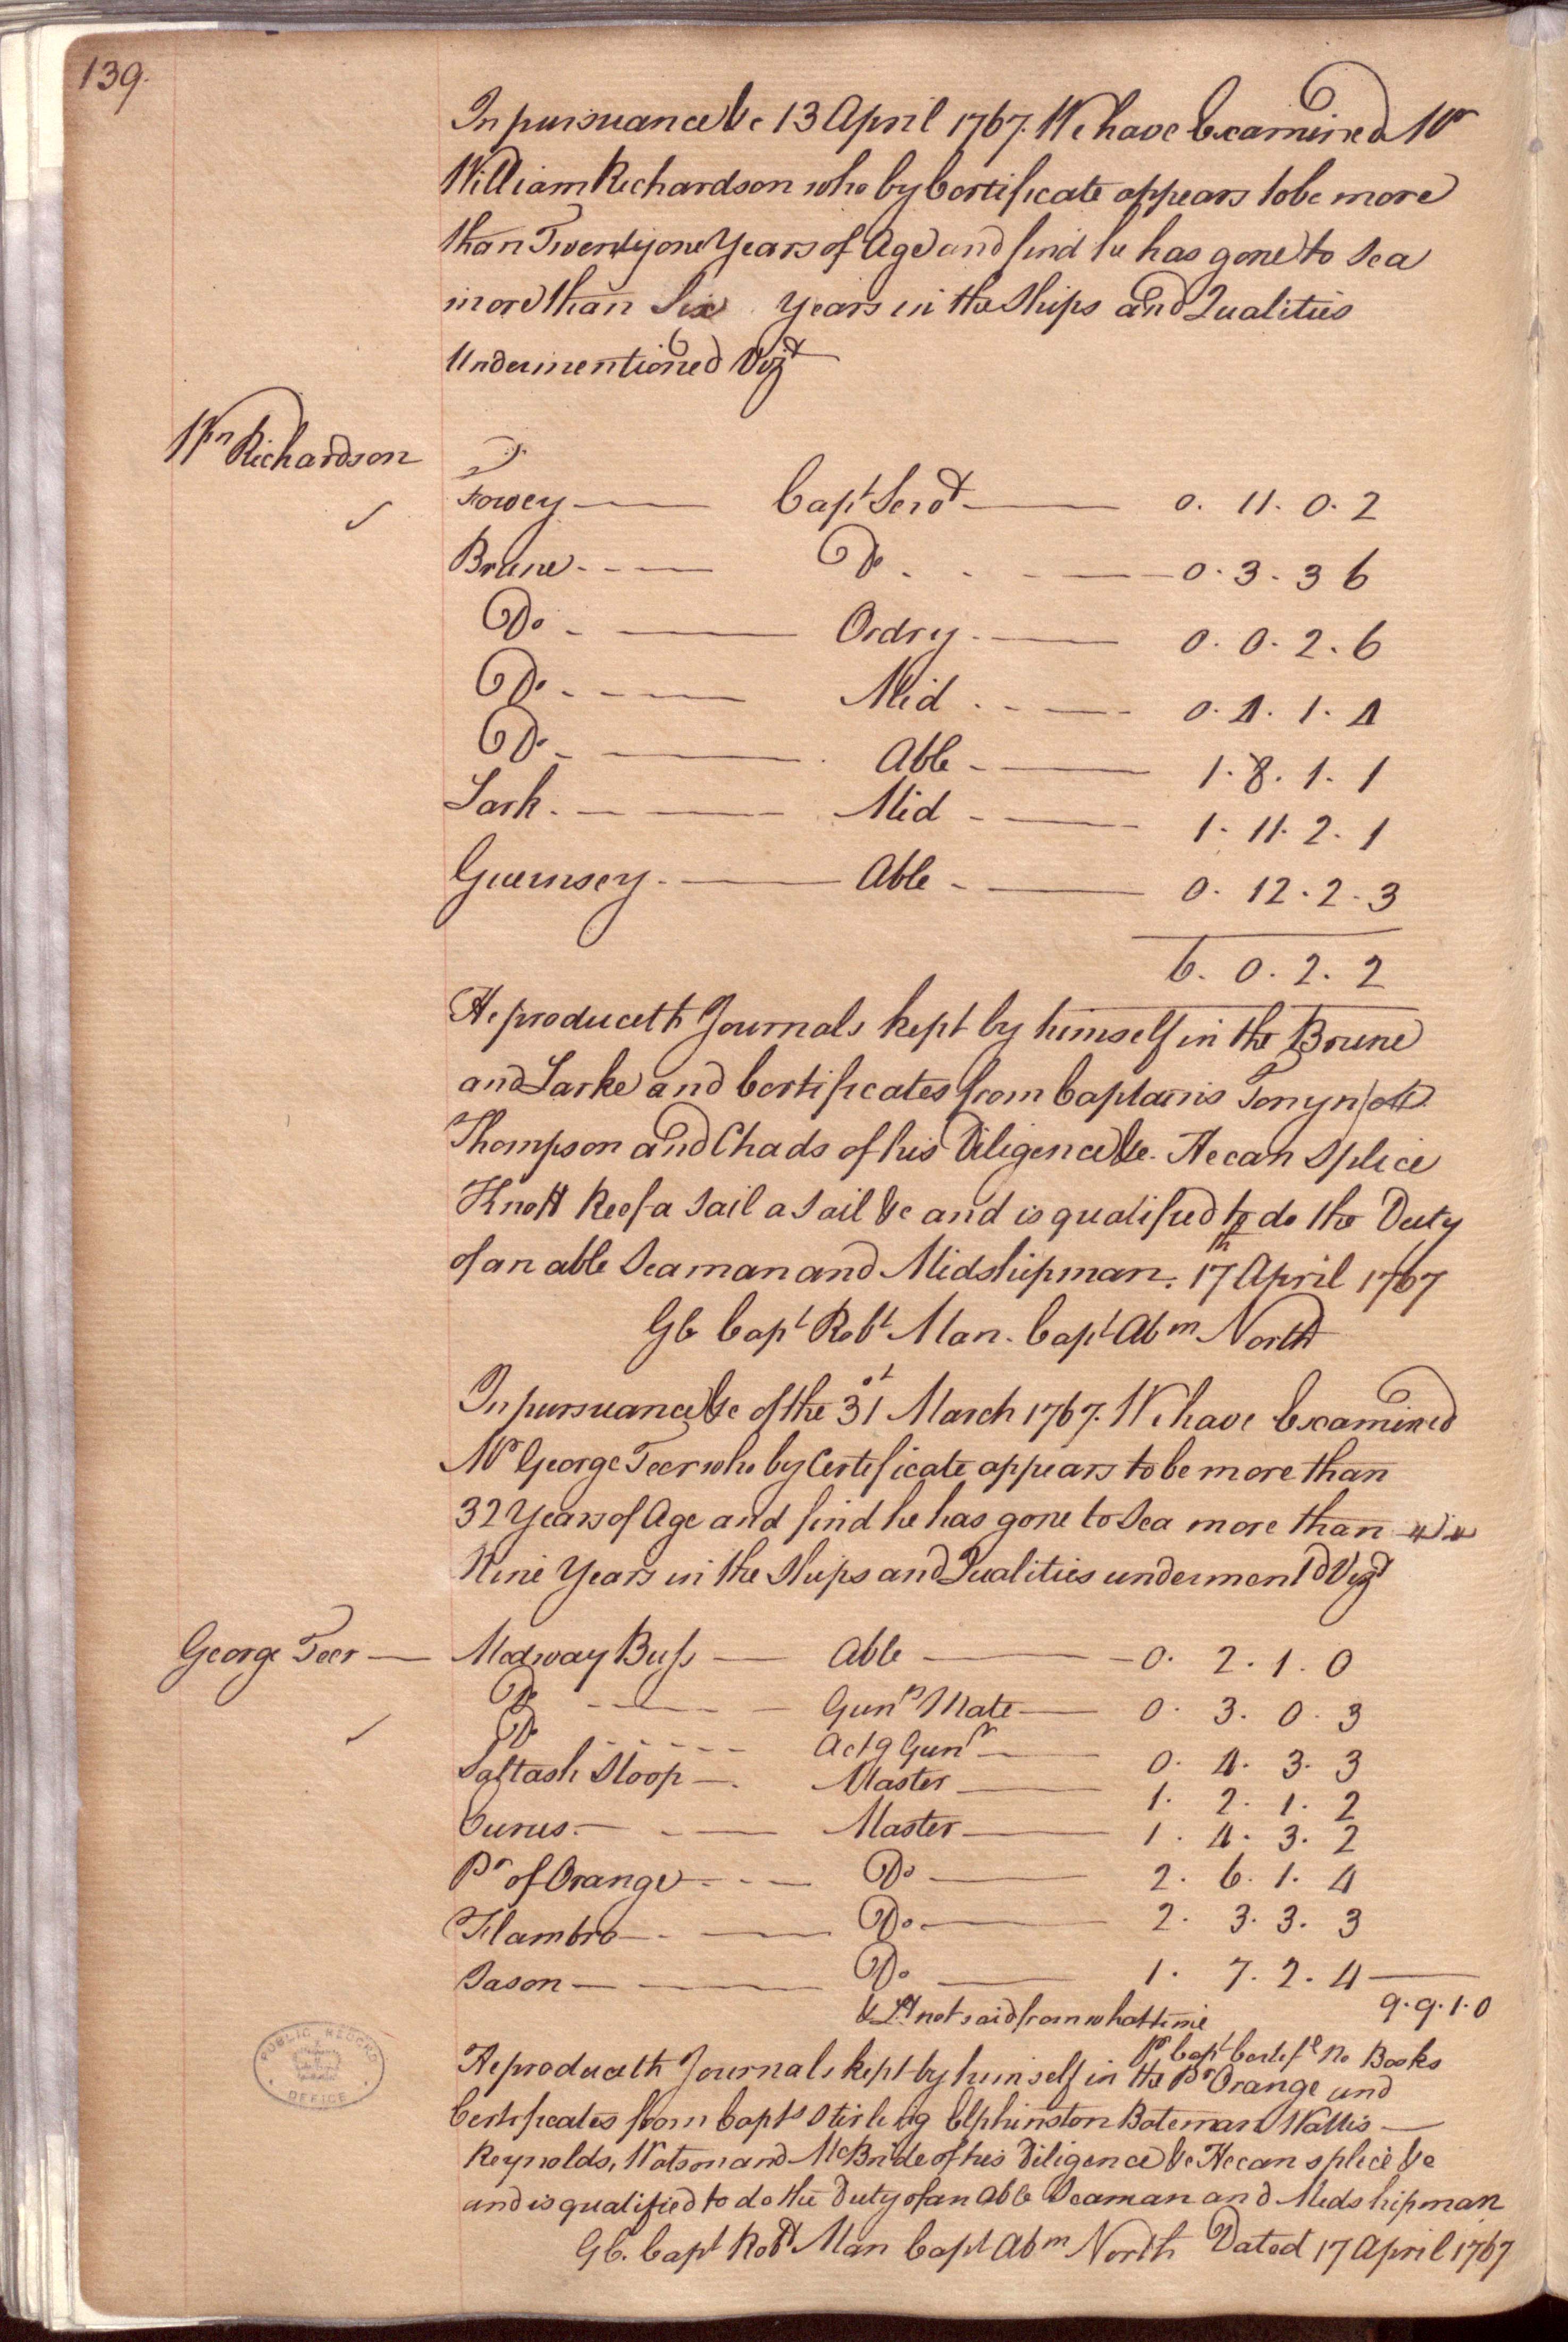 139.
In pursuance &c 13 April 1767. We have Examined Mr
William Richardson who by Certificate appears to be more
than Twenty one Years of Age and find he has gone to Sea
more than Six Years in the Ships and Qualities
Undermentioned Vizt
Wm Richardson
Fowey Capt Servt 0. 11. 0. 2
Brune Do 0. 3. 3 6
Do Ordry 0. 0. 2. 6
Do Mid 0. 4. 1. 4
Do Able 1. 8. 1. 1
Lark Mid 1. 11. 2. 1
Guernsey Able 0. 12. 2. 3
6. 0. 2. 2
He produceth Journals kept by himself in the Brune
and Larke and Certificates from Captains Tonyn
Thompson and Chads of his Diligence &c. He can Splice
Knott Reef a Sail a Sail &c and is qualified to do the Duty
of an able Seaman and Midshipman. 17th April 1767
GC Capt Robt Man. Capt Abm North
In pursuance &c of the 31st March 1767. We have Examined
Mr George Teer who by Certificate appears to be more than
32 Years of Age and find he has gone to Sea more than
Nine Years in the Ships and Qualities undermentd Vizt
George Teer
Medway Buss Able 0. 2. 1. 0
Do Gunrs Mate 0. 3. 0. 3
Do Actg Gunr 0. 4. 3. 3
Saltash Sloop Master 1. 2. 1. 2
Eurus Master 1. 4. 3. 2
Pr of Orange Do 2. 6. 1. 4
Flambro Do 2. 3. 3. 3
Jason Do 1. 7. 2. 4
& Lt not said from what time 9. 9. 1. 0
pr Capt Certife no Books
He produceth Journals kept by himself in the Pr Orange and
Certificates from Capts Stirling Elphinston Bateman Wallis
Reynolds, Watson and McBride of his Diligence &c He can splice &c
and is qualified to do the Duty of an Able Seaman and Midshipman
GC. Capt Robt Man Capt Abm North Dated 17 April 1767
PUBLIC RECORD OFFICE